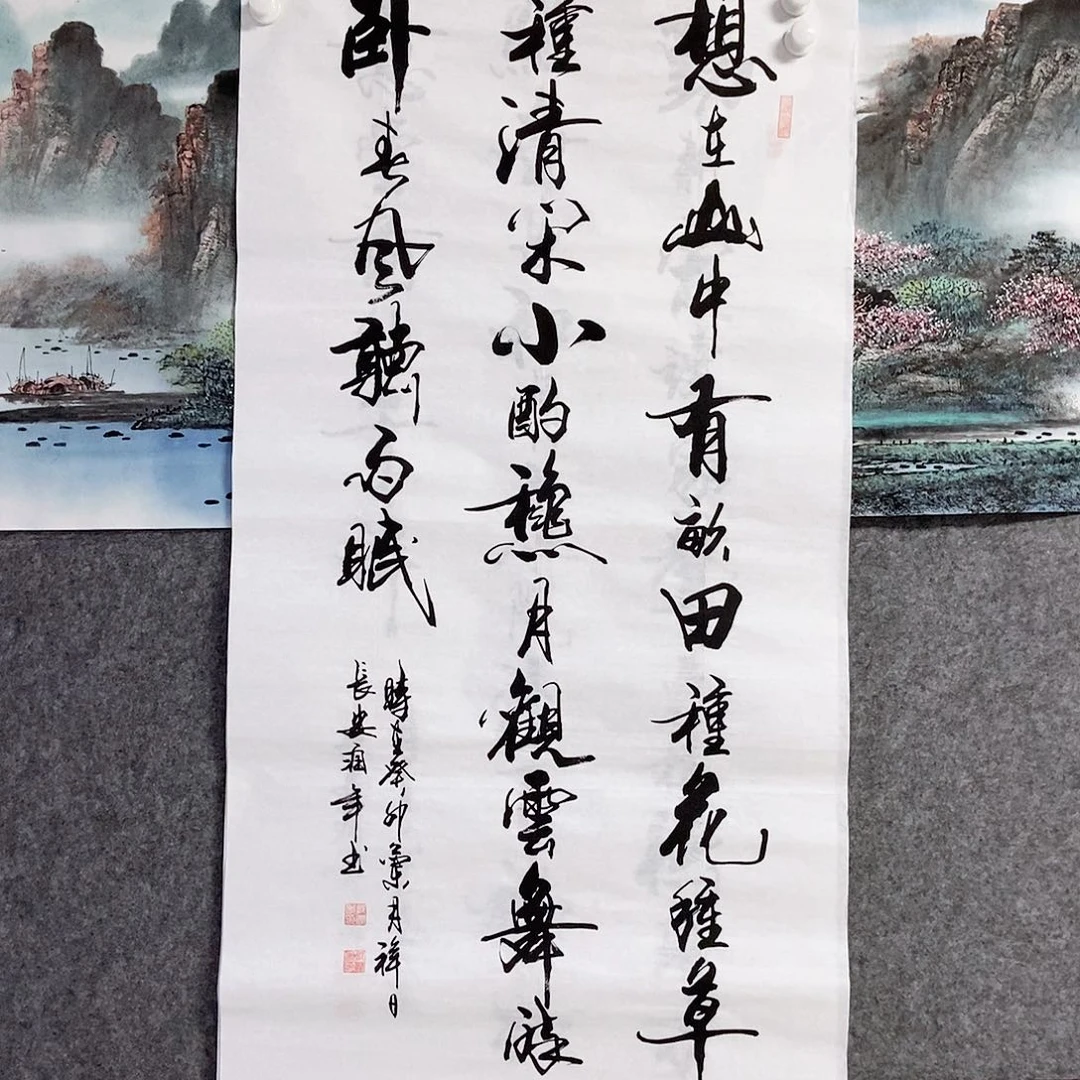 想在山中有畝田種花種草
種清閑小酌龝月觀雲舞醉
卧春風聽雨眠
時在癸卯月祥日
長安年书